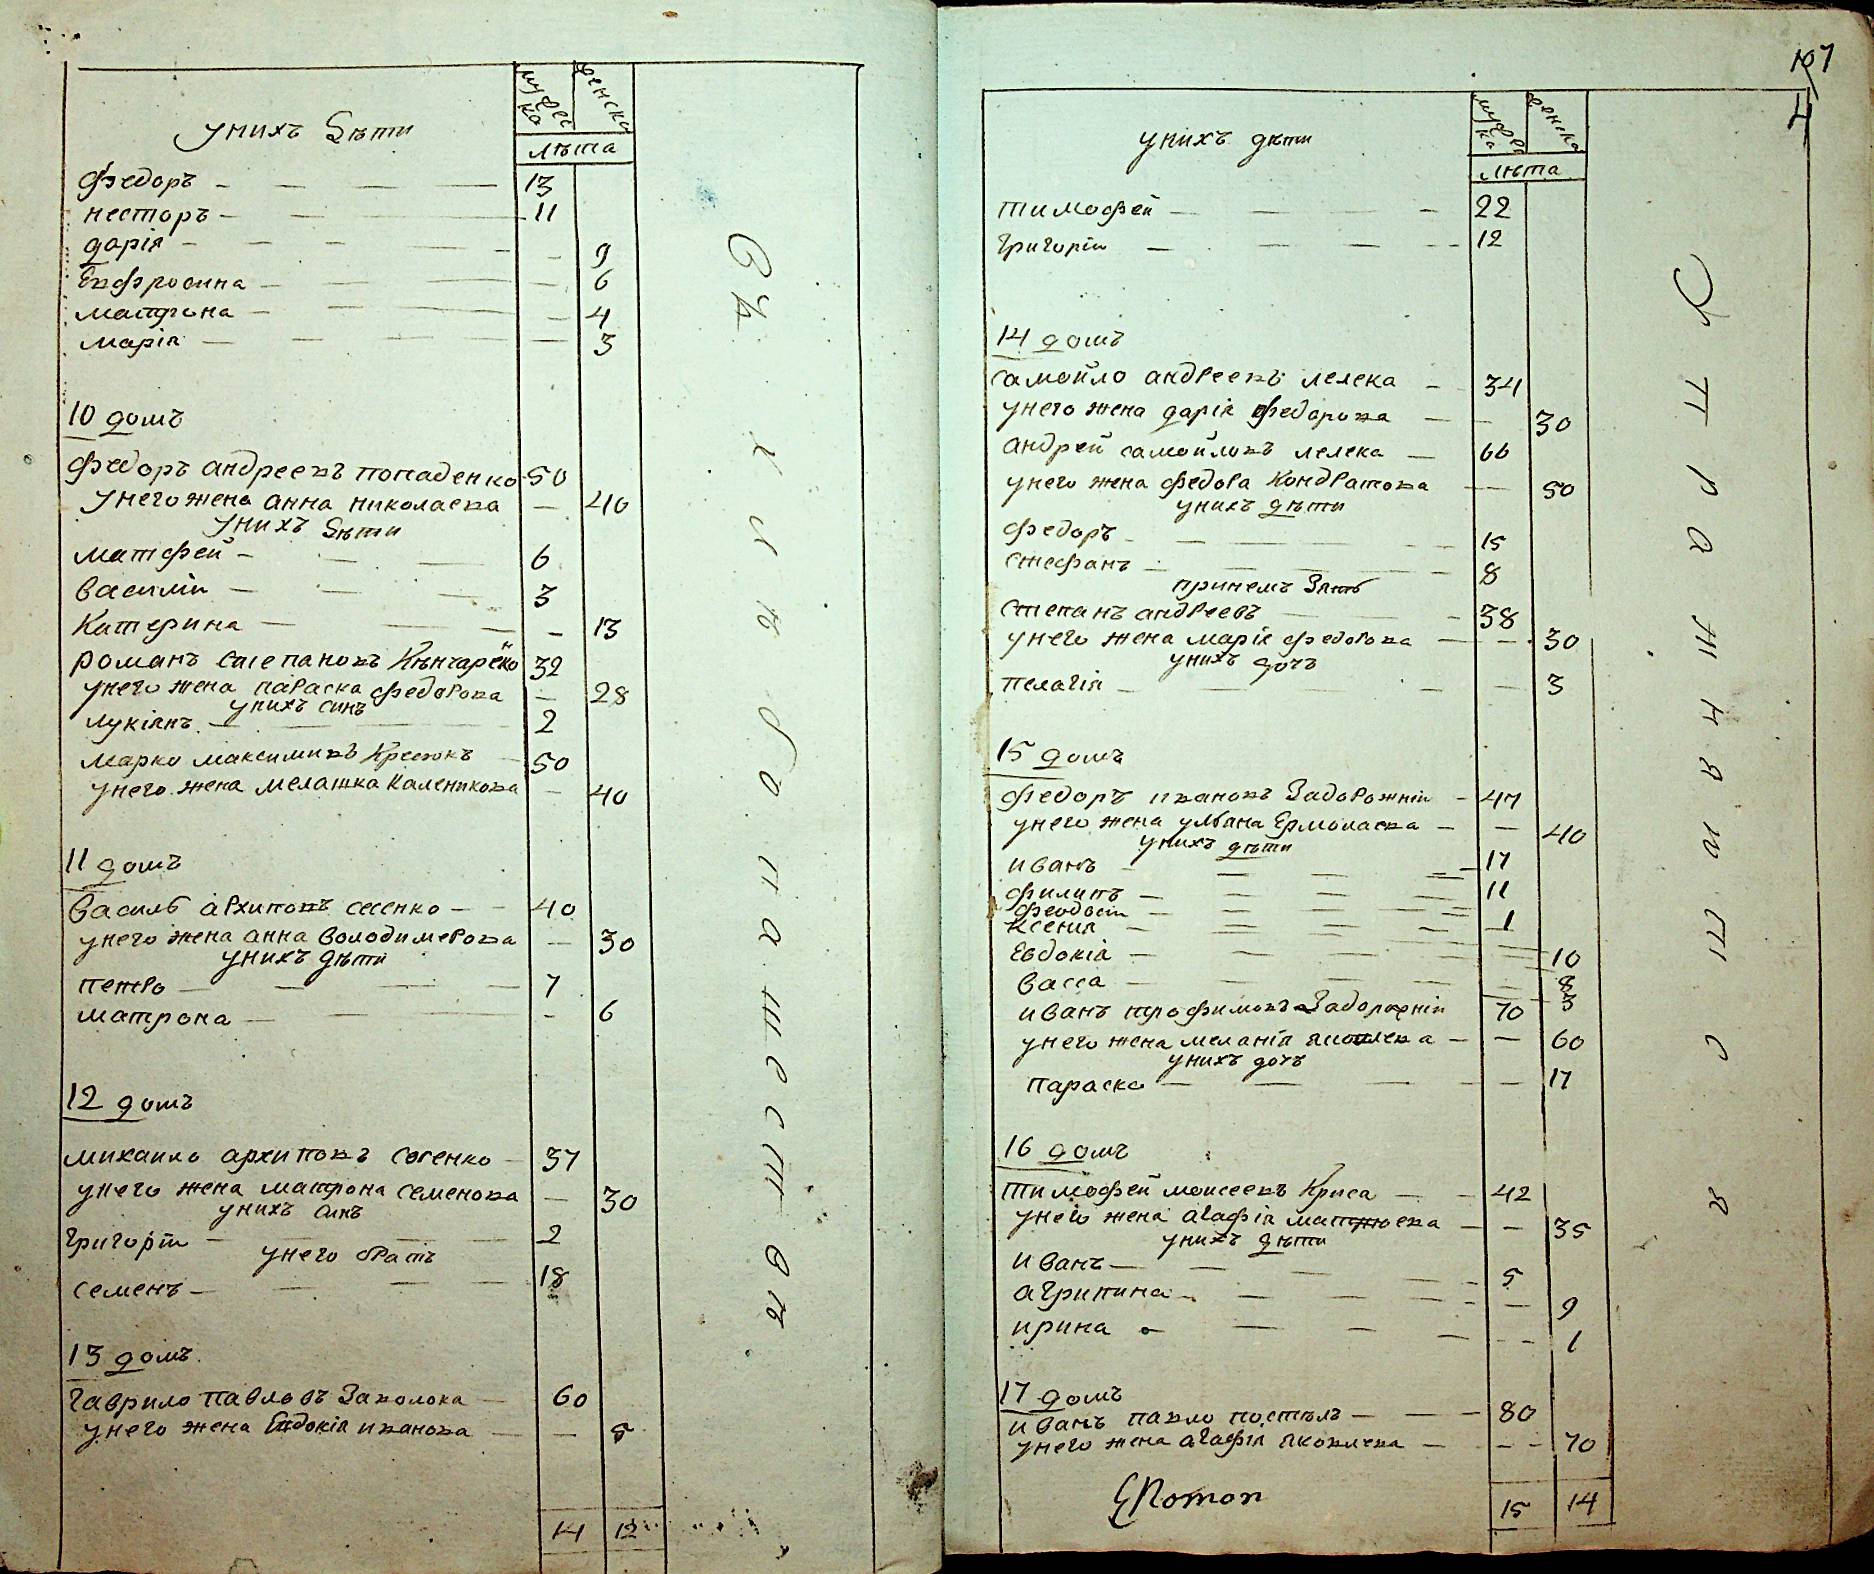 мужеска женска
унихъ дѣти
лѣта
Федоръ — 13
несторъ — 11
дарія — 9
Евфросина — 6
матрона — 4
марія — 3
10 домъ
Федоръ андреевъ попаденко 50
унего жена анна николаева — 40
унихъ дѣти
матфей — 6
василій — 3
Катерина — 13
романъ степановъ 32
унего жена параска федорова — 28
унихъ синъ
лукіанъ — 2
марко максимивъ 50
унего жена мелашка Каленикова — 40
11 домъ
василь архиповъ 40
унего жена анна володимерова — 30
унихъ дѣти
петро — 7
матрона — 6
12 домъ
михаило архиповъ 37
унего жена матрона семенова — 30
унихъ синъ
григорій — 2
унего братъ
семенъ — 18
13 домъ
гаврило павловъ Заволока — 60
унего жена Евдокія иванова —
14 12
107
4
мужеска женска
унихъ дѣти
лѣта
тимофей — 22
григорій — 12
14 домъ
самойло андреевъ лелека — 34
унего жена дарія федорова — 30
андрей самойловъ лелека — 66
унего жена федора Кондратова — 50
унихъ дѣти
федоръ — 15
стефанъ — 8
принемъ Зять
степанъ андреевъ — 38
унего жена марія федорова — 30
унихъ дочъ
пелагія — 3
15 домъ
федоръ ивановъ Задорожній — 47
унего жена уляна Ермолаева — 40
унихъ дѣти
иванъ — 17
филипъ — 11
феодосій — 1
Ксенія —
Евдокія — 10
васса — 8
3
иванъ трофимовъ Задорожній 70
унего жена меланія яковлева — 60
унихъ дочъ
параска — 17
16 домъ
тимофей моисеевъ Криса — 42
унего жена агафія — 35
унихъ дѣти
иванъ — 5
агрипина — 9
ирина — 1
17 домъ
иванъ павло — 80
унего жена агафія яковлева — 70
15 14